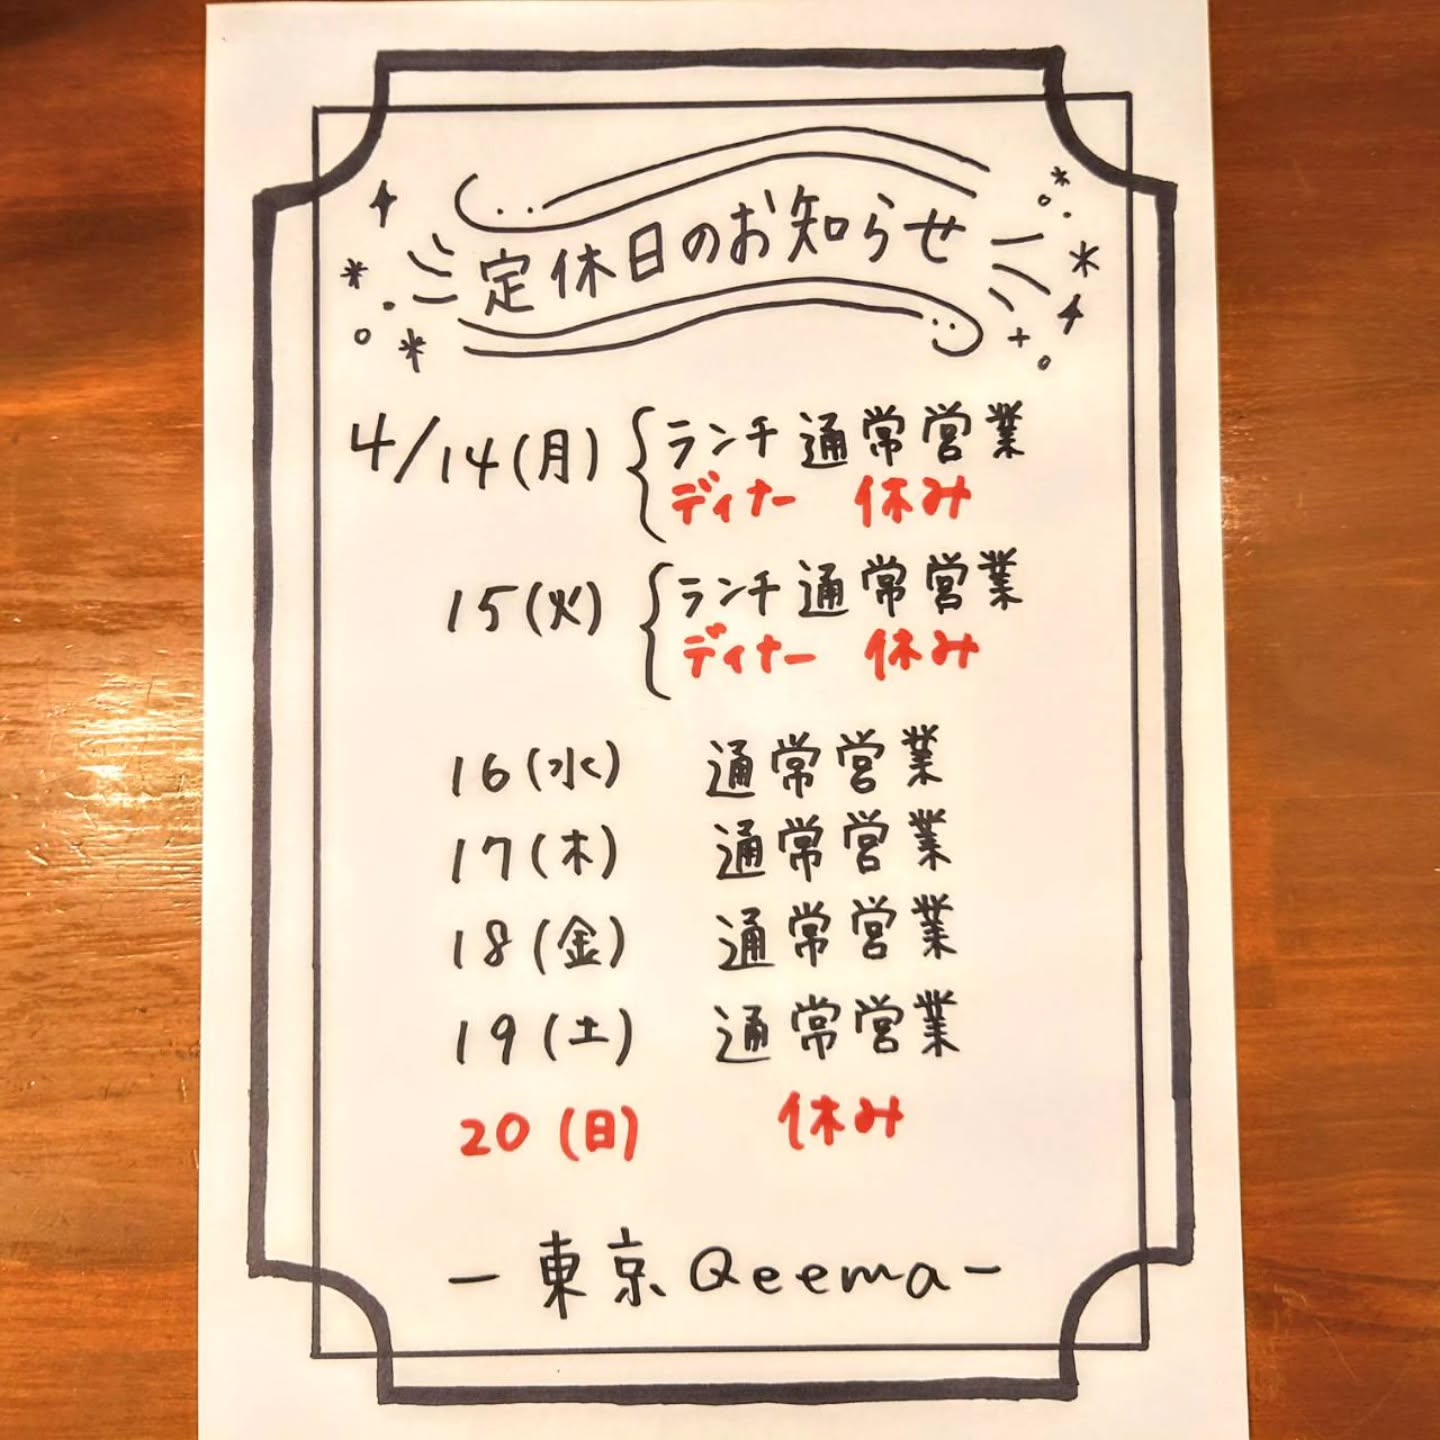 定休日のお知らせ
4/14(月) ランチ 通常営業
ディナー 休み
15(火) ランチ 通常営業
ディナー 休み
16(水) 通常営業
17(木) 通常営業
18(金) 通常営業
19(土) 通常営業
20(日) 休み
ー東京Qeemaー